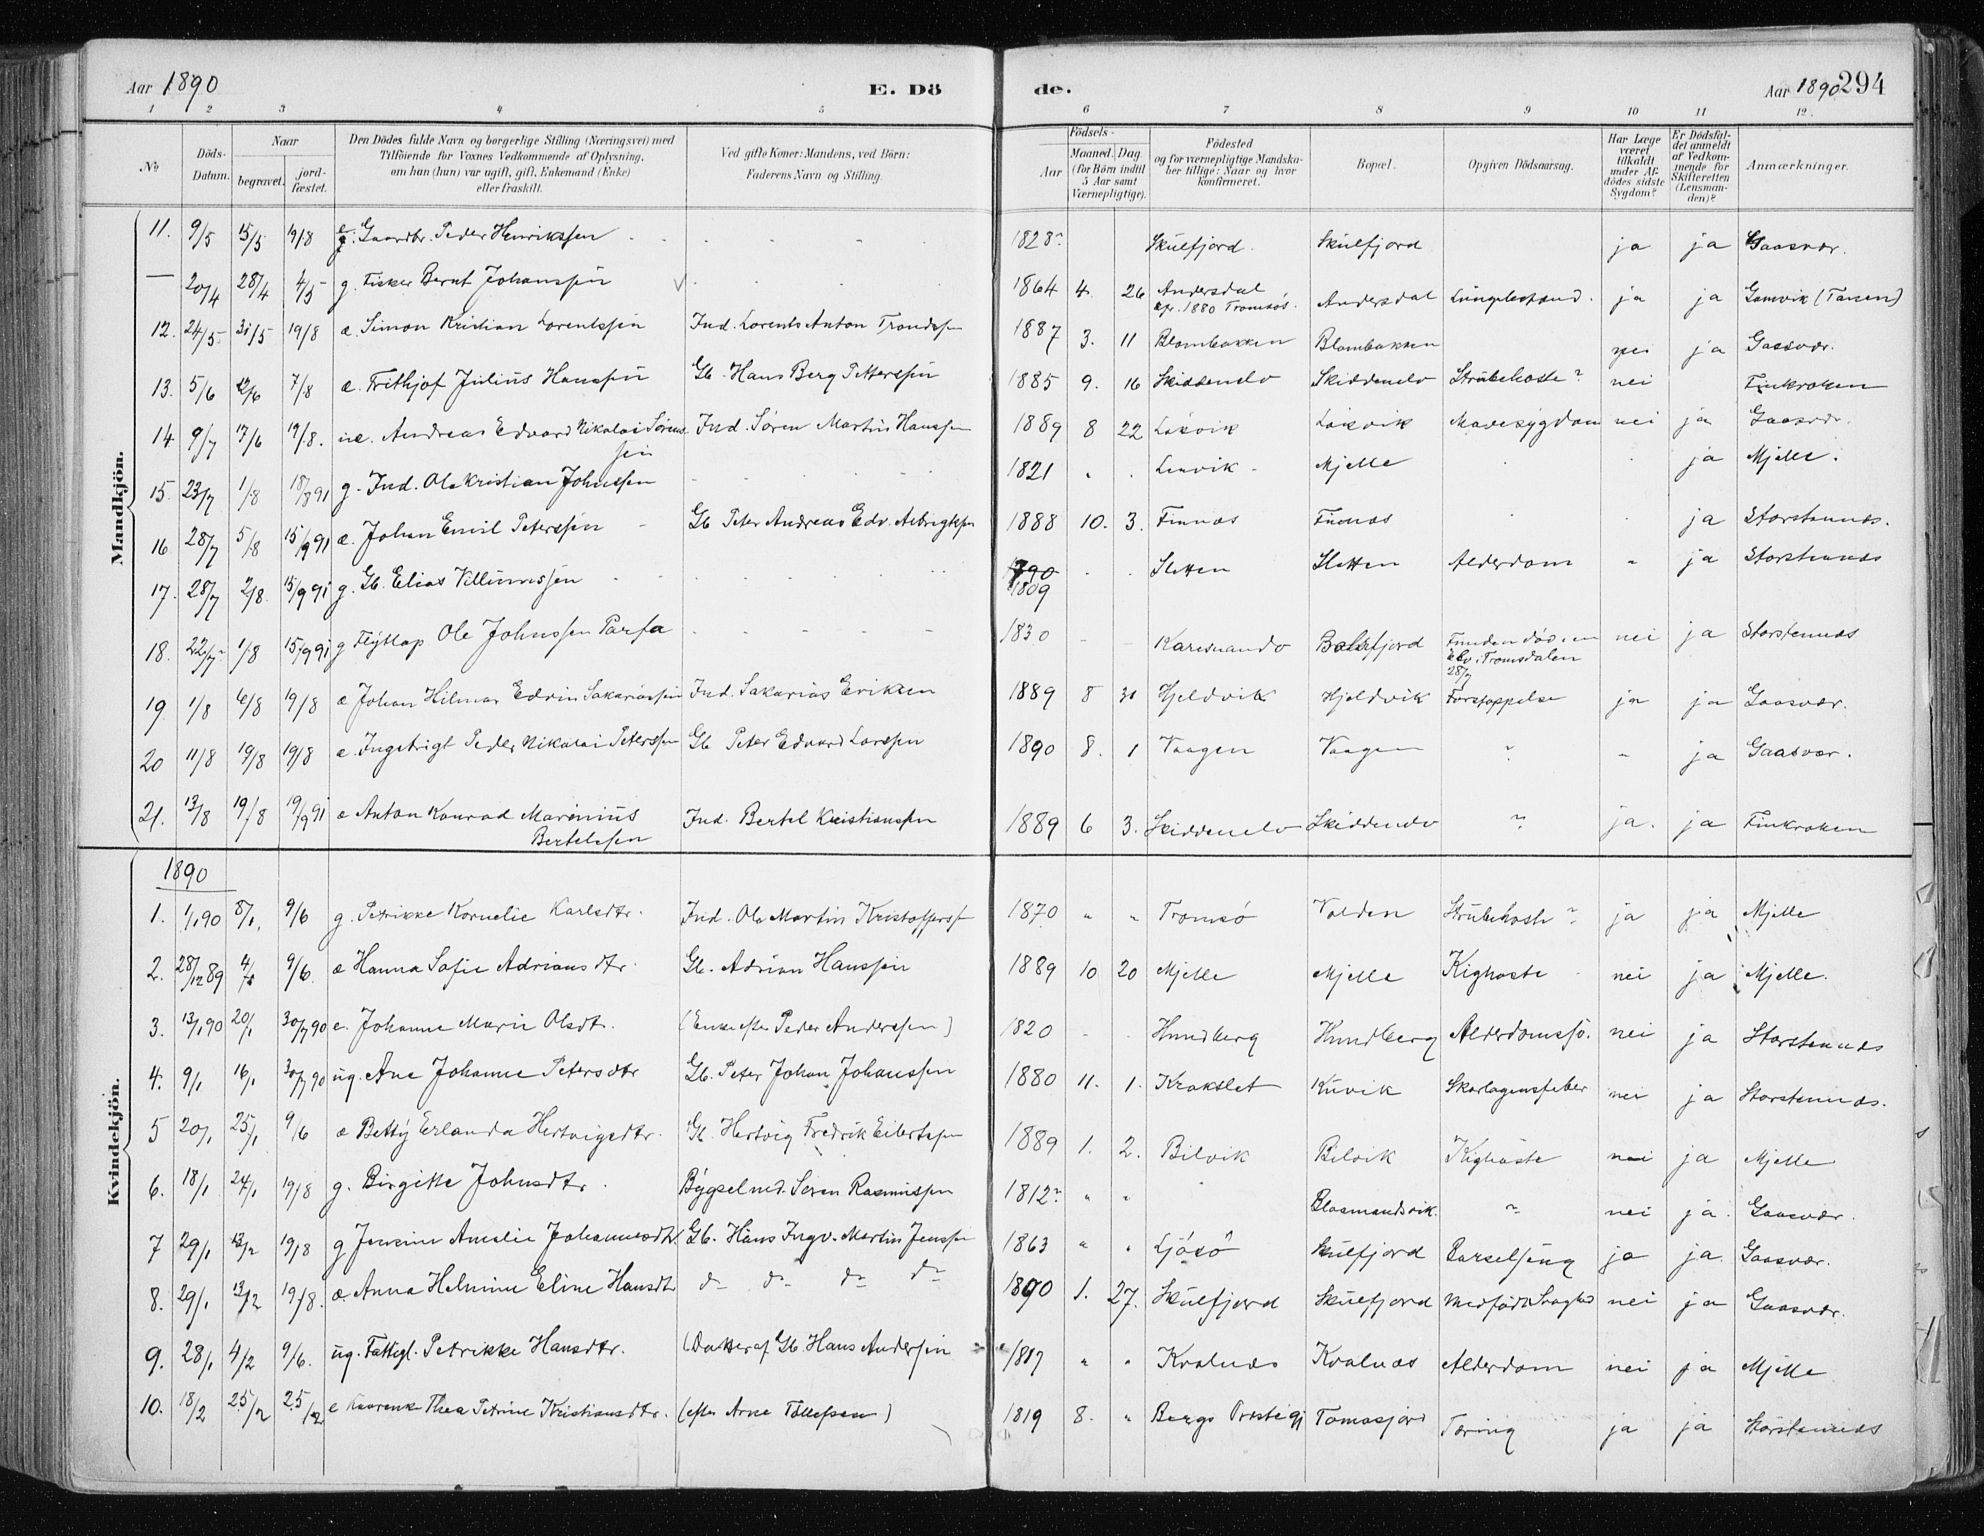 Aar 1890 E. Dö de. Aar 1890 294
1 2 3 4 5 6 7 8 9 10 11 12.
No Döds-Datum. Naar begravet. jord-fæstet. Den Dödes fulde Navn og borgerlige Stilling (Næringsvei) med Tilföiende for Voxnes Vedkommende af Oplysning, om han (hun) var ugift, gift, Enkemand (Enke) eller fraskilt. Ved gifte Koner: Mandens, ved Börn: Faderens Navn og Stilling. Födsels- Aar Maaned. Dag (for Börn indtil 5 Aar samt Værnepligtige). Födested og for værnepligtige Mandskaber tillige: Naar og hvor konfirmeret. Bopæl. Opgiven Dödsaarsag. Har Læge været tilkaldt under Afdödes sidste Sygdom? Er Dödsfaldet anmeldt af Vedkommende for Skifteretten (Lensmanden)? Anmærkninger.
Mandkjön.
11. 9/5 15/5 19/8 Gaardbr. Peder Henrikssen 1828 Skulfjord. Skulfjord ja ja Gaasvær.
— 20/4 28/4 4/5 g. Fisker Bernt Johanssen 1864 4. 26 Andersdal kfr. 1880 Tromsøs. Andersdal Lungebetænd. ja ja Gamvik (Tanen)
12. 24/5 31/5 19/8 æ. Simon Kristian Lorentssen Ind. Lorents Anton Trondssen 1887 3. 11 Blombakken Blombakken nei ja Gaasvær.
13. 5/6 12/6 7/8 æ. Frithjof Julius Hanssen Gb. Hans Berg Pettersen 1885 9. 16 Skiddenelv Skiddenelv Strubehoste? nei Finkroken
14 9/7 17/6 19/8. ue. Andreas Edvard Nikolai Sørens-
sen Ind. Søren Martin Hanssen 1889 8 22 Løksvik Løksvik Mavesygdom nei ja Gaasvær.
15. 23/7 1/8 18/8 91 g. Ind. Ole Kristian Johnssen 1821 Lenvik Mjelle ja Mjelle.
16. 28/7 5/8 15/9 91 æ. Johan Emil Peterssen Gb Peter Andreas Edv. Aebrigtsen 1888 10. 3. Finnæs Finnæs ja Storstennes.
17. 28/7 2/8. 15/9 91 g. Gb. Elias Villumssen 1790 1809 Sletten Sletten Alderdom " ja Storstennes
18. 22/7 1/8 15/9 91 g Flytlap Ole Johnssen Parfa 1830 Karesuando Balsfjord Funden død i en Elv i Tromsdalen 28/7 nei ja Storstennes
19 1/8 6/8 19/8 æ Johan Hilmar Edvin Sakariassen Ind. Sakarias Eriksen 1889 8 31 Hjeldvik Hjeldvik Forstoppelse ja ja Gaasvær.
20 11/8 19/8 19/8 e. Ingebrigt Peder Nikolai Peterssen Gb Peter Edvard Larssen 1890 8. 1 Vaagen Vaagen " " ja Gaasvær.
21. 13/8 19/8 19/9 91 æ Anton Konrad Marinius
Bertelssen Ind. Bertel Kristianssen 1889 6 3. Skiddenelv Skiddenelv " ja. ja Finkroken
1890
Kvindekjön.
1. 1/1 90 8/1. 9/6 g. Petrikke Kornelie Karlsdtr. Ind. Ole Martin Kristoffersen 1870 " " Tromsø Valden Strubehoste ? ja ja Mjelle
2. 28/12 89 4/1 9/6. æ Hanna Sofie Adriansdtr. Gb. Adrian Hanssen 1889 10 20 Mjelle Mjelle Kighoste nei ja Mjelle.
3. 13/1 90 20/1 30/7 90 e. Johanne Marie Olsdtr. (Enke efter Peder Anderssen) 1820 Hundberg Hundberg Alderdomssø. nei ja Storstennes
4. 9/1 16/1 30/7 90 ug. Ane Johanne Petersdtr Gb. Peter Johan Johanssen 1880 11. 1. Krakslet Kuvik Skarlagensfeber nei ja Storstennes.
5 20/1 25/1 9/6 æ Betty Erlanda Hertvigsdtr. Gb. Hertvig Fredrik Eilertssen 1889 1. 2. Bilvik Bilvik Kighoste nei ja Mjelle
6. 18/1 24/1 19/8 g. Birgitte Johnsdtr. Bygselmd. Søren Rasmussen 1812? " " Blaamandsvik. " nei ja. Gaasvær.
7 29/1 13/2 19/8 g Jensine Amalie Johannesdtr. Gb. Hans Ingv. Martin Jenssen 1863 " " Ljøsø Skulfjord Barselseng ja ja. Gaasvær.
8. 29/1 13/2 19/8. æ. Anna Helmine Eline Hansdtr do do do do 1890 1. 27. Skulfjord Skulfjord Medfødt Svaghed nei ja Gaasvær.
9. 28/1 4/2 9/6. ug. Fattigl. Petrikke Hansdtr. (Datter af Gb. Hans Anderssen 1817 " " Kvalnæs Kvalnæs Alderdom nei ja Mjelle
10. 18/2 25/2 25/2 e Kaarenke Thea Petrine Kristiansdtr. (efter Arne Tollefsen) 1819 8. " Bergs Prestegj Tomasjord Tæring ja ja Storstennes